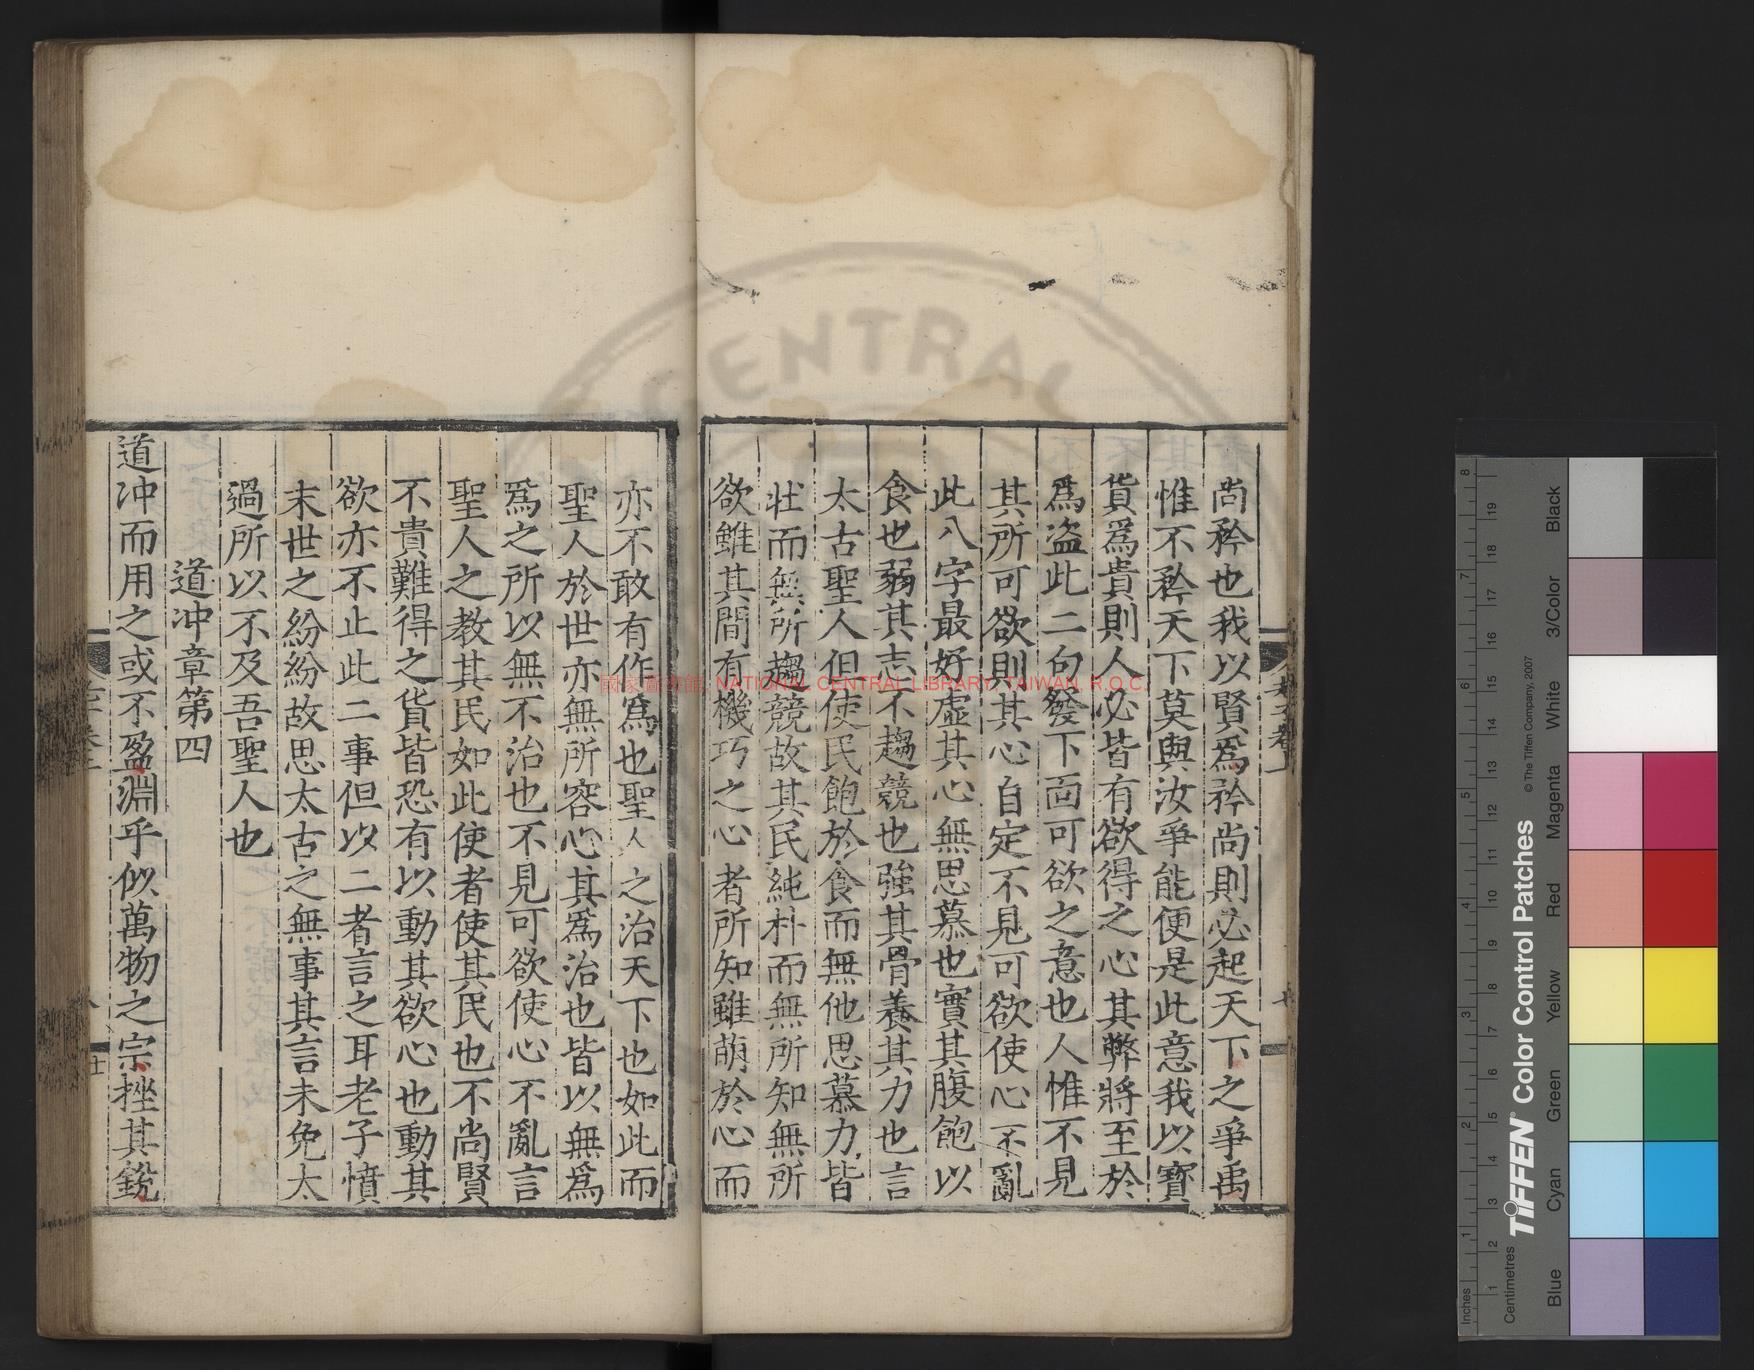 尚矜也我以賢爲矜尚則必起天下之爭禹
惟不矜天下莫與汝爭能便是此意我以寶
貨爲貴則人必皆有欲得之心其弊將至於
爲盗此二句發下面可欲之意也人惟不見
其所可欲則其心自定不見可欲使心不亂
此八字最好虛其心無思慕也實其腹飽以
食也弱其志不趨競也強其骨養其力也言
太古聖人但使民飽於食而無他思慕力皆
壯而無所趨競故其民純朴而無所知無所
欲雖其間有機巧之心者所知雖萌於心而
亦不敢有作爲也聖人之治天下也如此而
聖人於世亦無所容心其爲治也皆以無爲
爲之所以無不治也不見可欲使心不亂言
聖人之教其民如此使者使其民也不尚賢
不貴難得之貨皆恐有以動其欲心也動其
欲亦不止此二事但以二者言之耳老子憤
末世之紛紛故思太古之無事其言未免太
過所以不及吾聖人也
道冲章第四
道冲而用之或不盈淵乎似萬物之宗挫其銳
國家圖書館, NATIONAL CENTRAL LIBRARY, TAIWAN, R.O.C.
CENTRAL
TIFFEN® Color Control Patches
© The Tiffen Company, 2007
Inches
Centimetres
1 2 3 4 5 6 7 8
1 2 3 4 5 6 7 8 9 10 11 12 13 14 15 16 17 18 19
Blue
Cyan
Green
Yellow
Red
Magenta
White
3/Color
Black